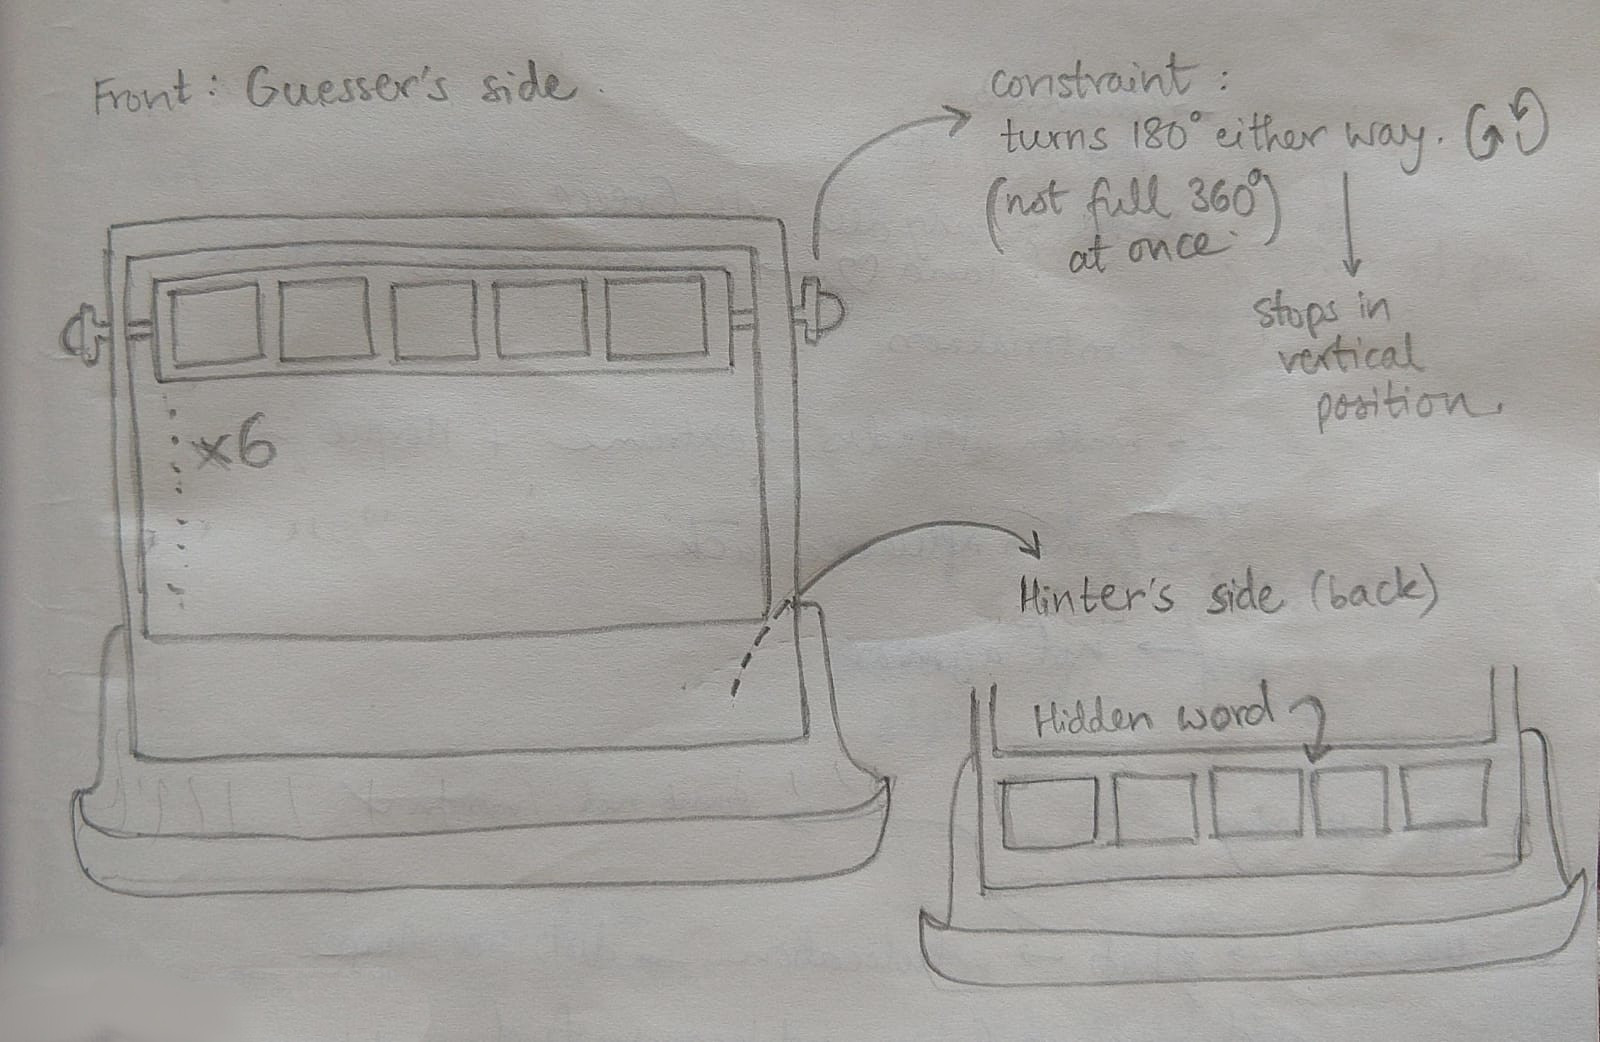 Front: Guesser's side.
constraint:
turns 180° either way.
(not full 360°)
at once.
stops in
vertical
position.
×6
Hinter's side (back)
Hidden word